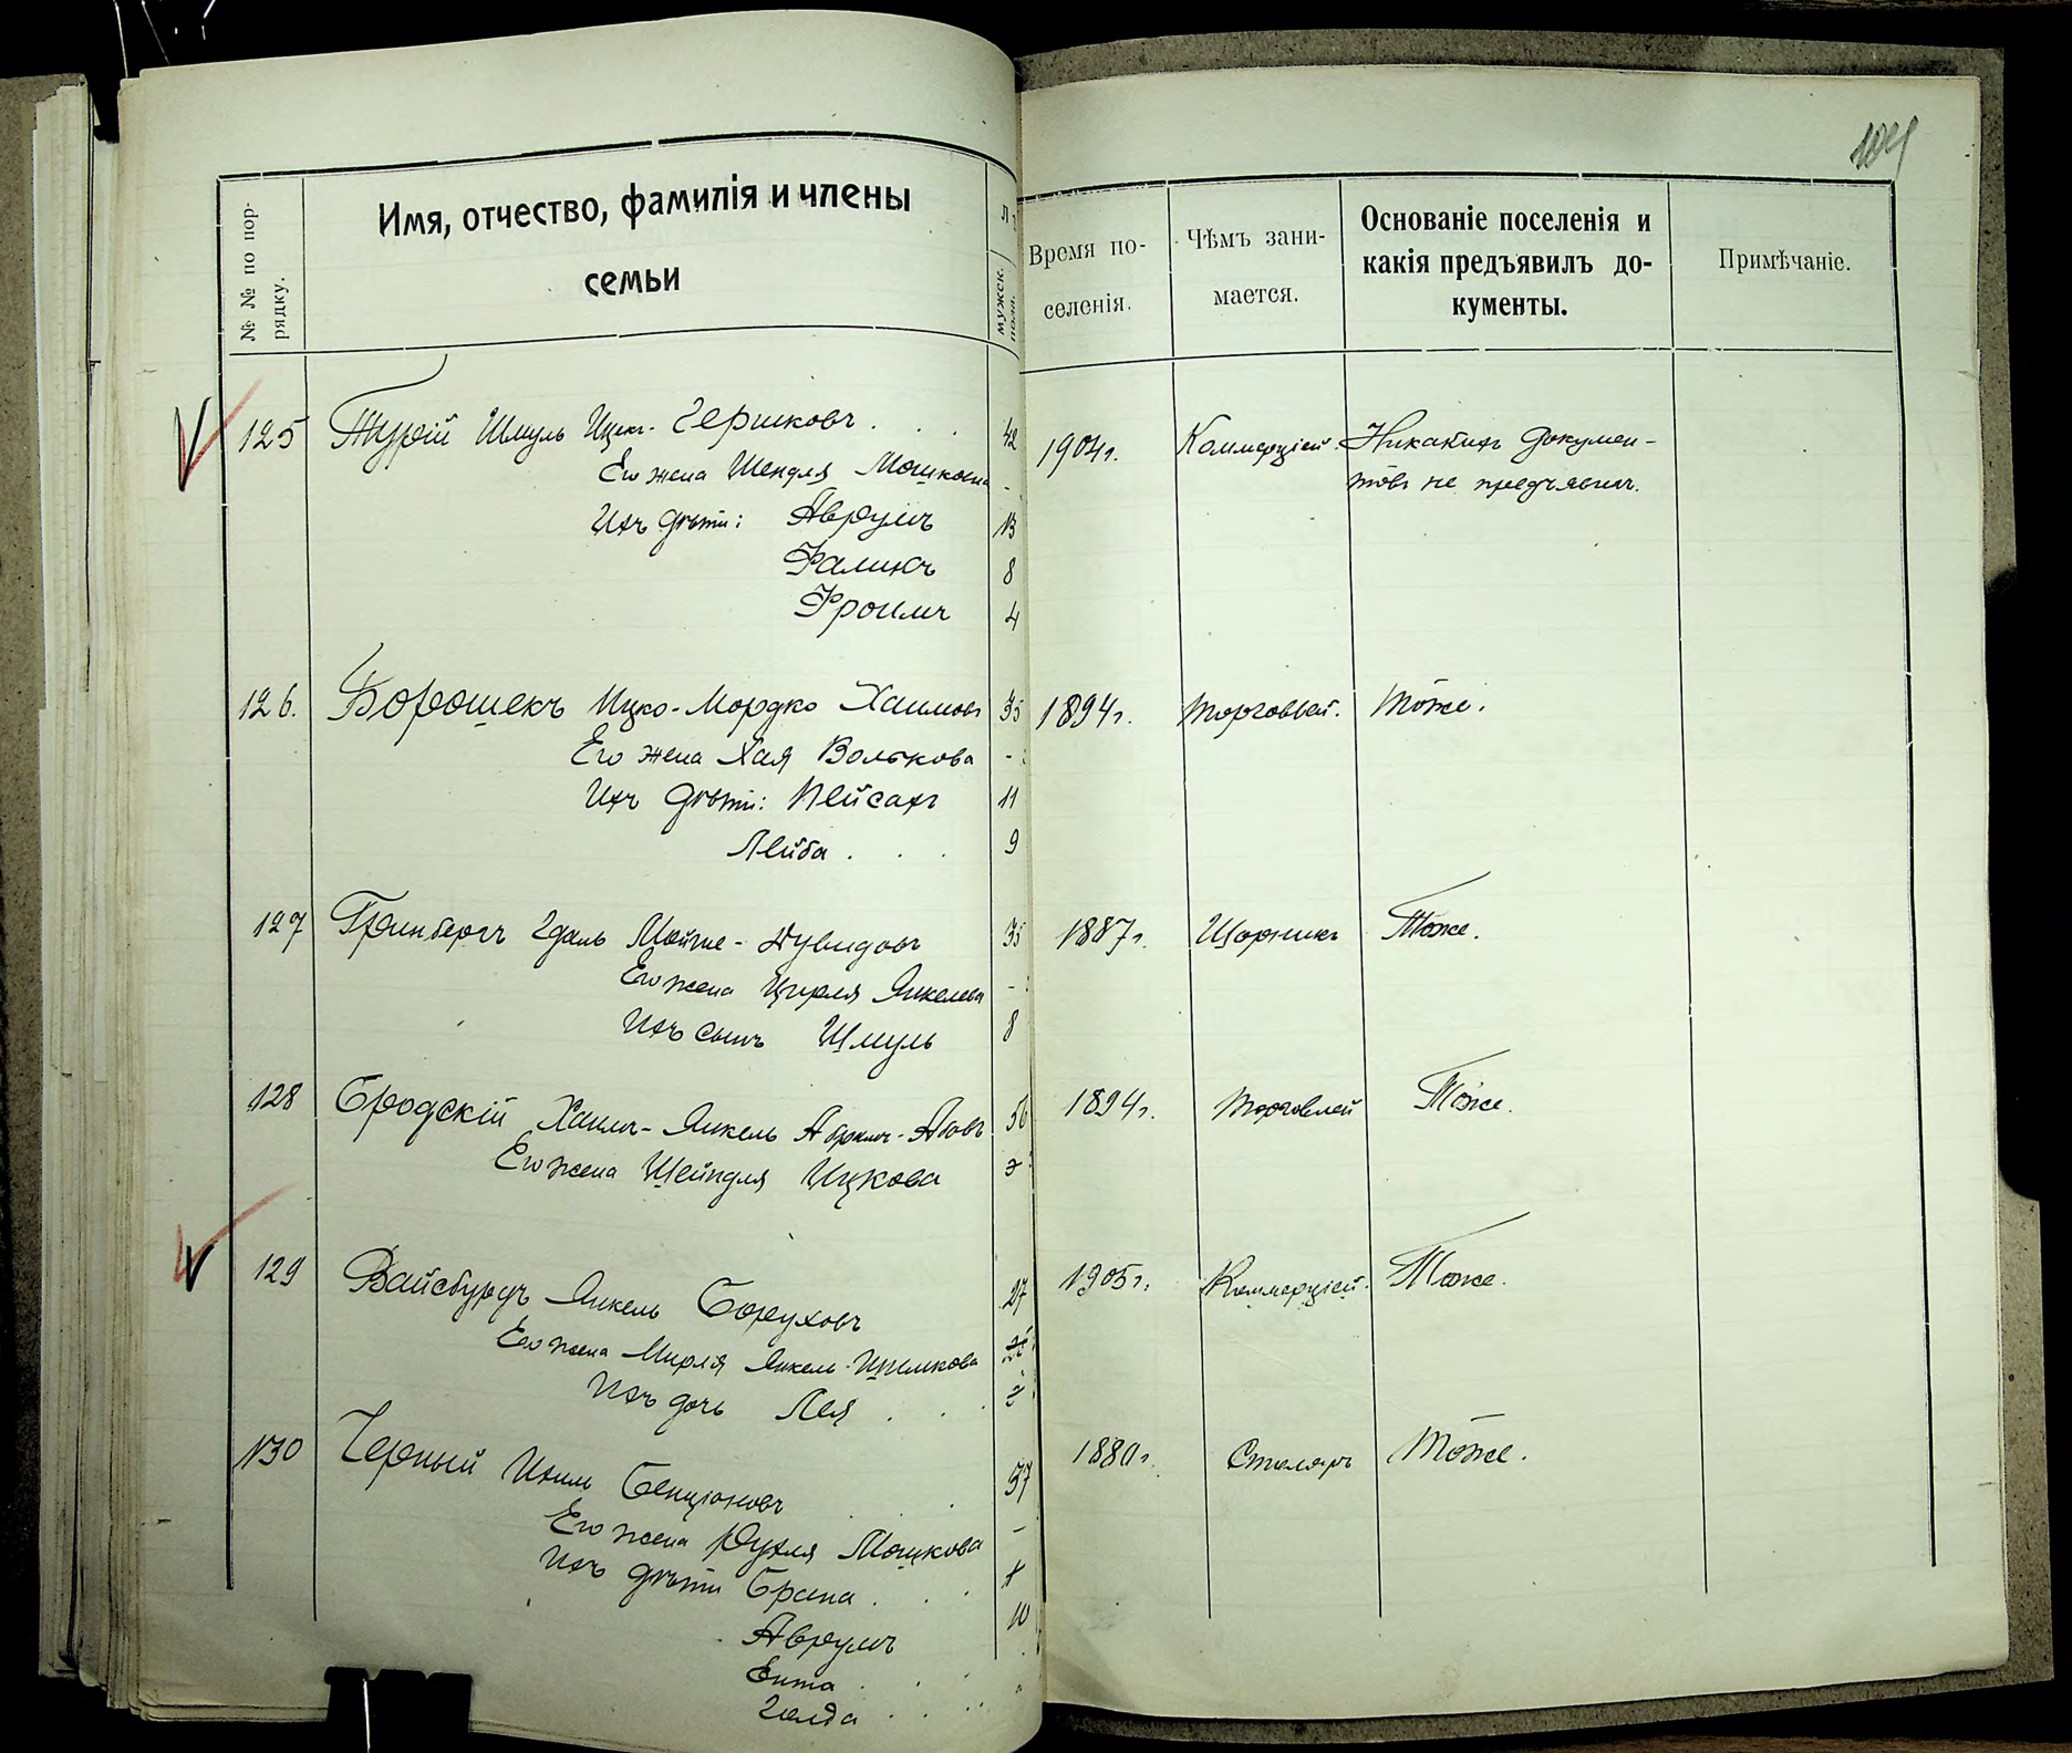 104
№ № по пор-
рядку.
Имя, отчество, фамилія и члены
семьи
мужск.
пола.
Время по-
селенія.
Чѣмъ зани-
мается.
Основаніе поселенія и
какія предъявилъ до-
кументы.
Примѣчаніе.
125 Турій Шмуль Ицек- Гершковъ . . . 42 1904 г. Коммерціей. Никакихъ докумен-
Его жена Шендля Мошкова - товъ не предъявилъ.
Ихъ дѣти: Аврумъ 13
Фаликъ 8
Фроимъ 4
126. Ворошекъ Ицко-Мордко Хаимовъ 35 1894 г. Торговлей. Тоже.
Его жена Хая Волькова -
Ихъ дѣти: Пейсахъ 11
Лейба . . . 9
127 Гринбергъ Эдаль Мойше-Дувидовъ 35 1887 г. Шорникъ Тоже.
Его жена Цирля Янкелева -
Ихъ сынъ Шмуль 8
128 Бродскій Хаимъ-Янкель Абрамъ-Абовъ 56 1894 г. Торговлей Тоже.
Его жена Шейндля Ицкова
129 Вайсбурдъ Янкель Боруховъ 27 1905 г. Коммерціей. Тоже.
Его жена Мирля Янкель-
Ихъ дочь Лея . . .
130 Черный Ихиль Бенціоновъ 57 1880 г. Столяръ Тоже.
Его жена Рухля Мошкова -
Ихъ дѣти Брана . . .
Аврумъ 10
Ента . . .
Голда . . .